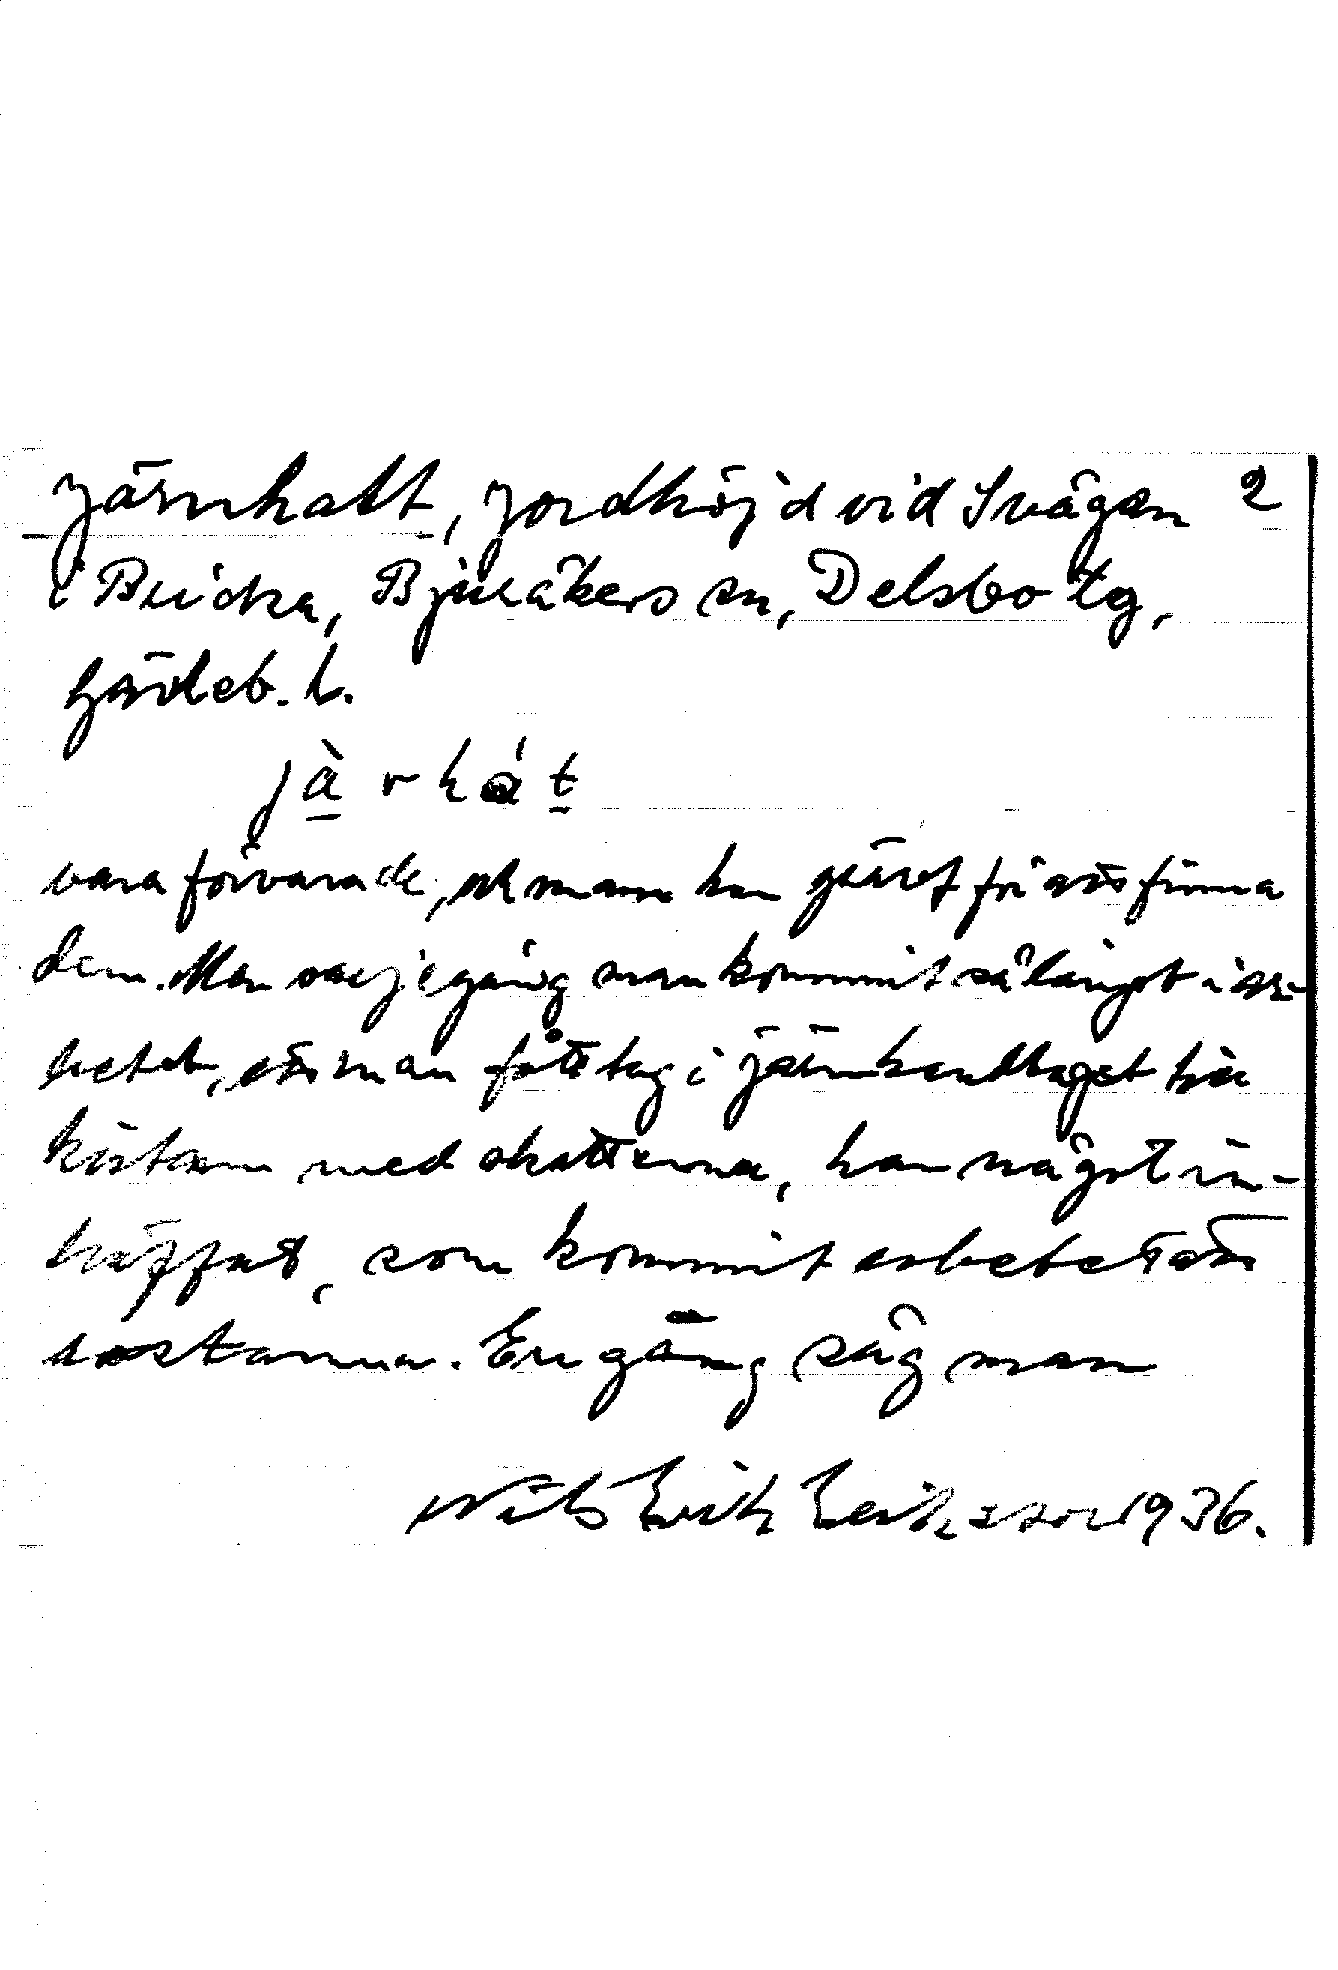 Järnhatt, jordhöjd vid Svågan 2
i Bricka, Bjuråkers sn, Delsbo tg,
Gävleb. l.
jà r h á t
vara förvarade, och man har grävt för att finna
dem. Men varje gång man kommit så långt i ar-
betet, att man fått tag i järnhandtaget till
kistan med skatterna, har något in-
träffat, som kommit arbetet att
avstanna. En gång såg man
Nils Erik Eriksson 1936.